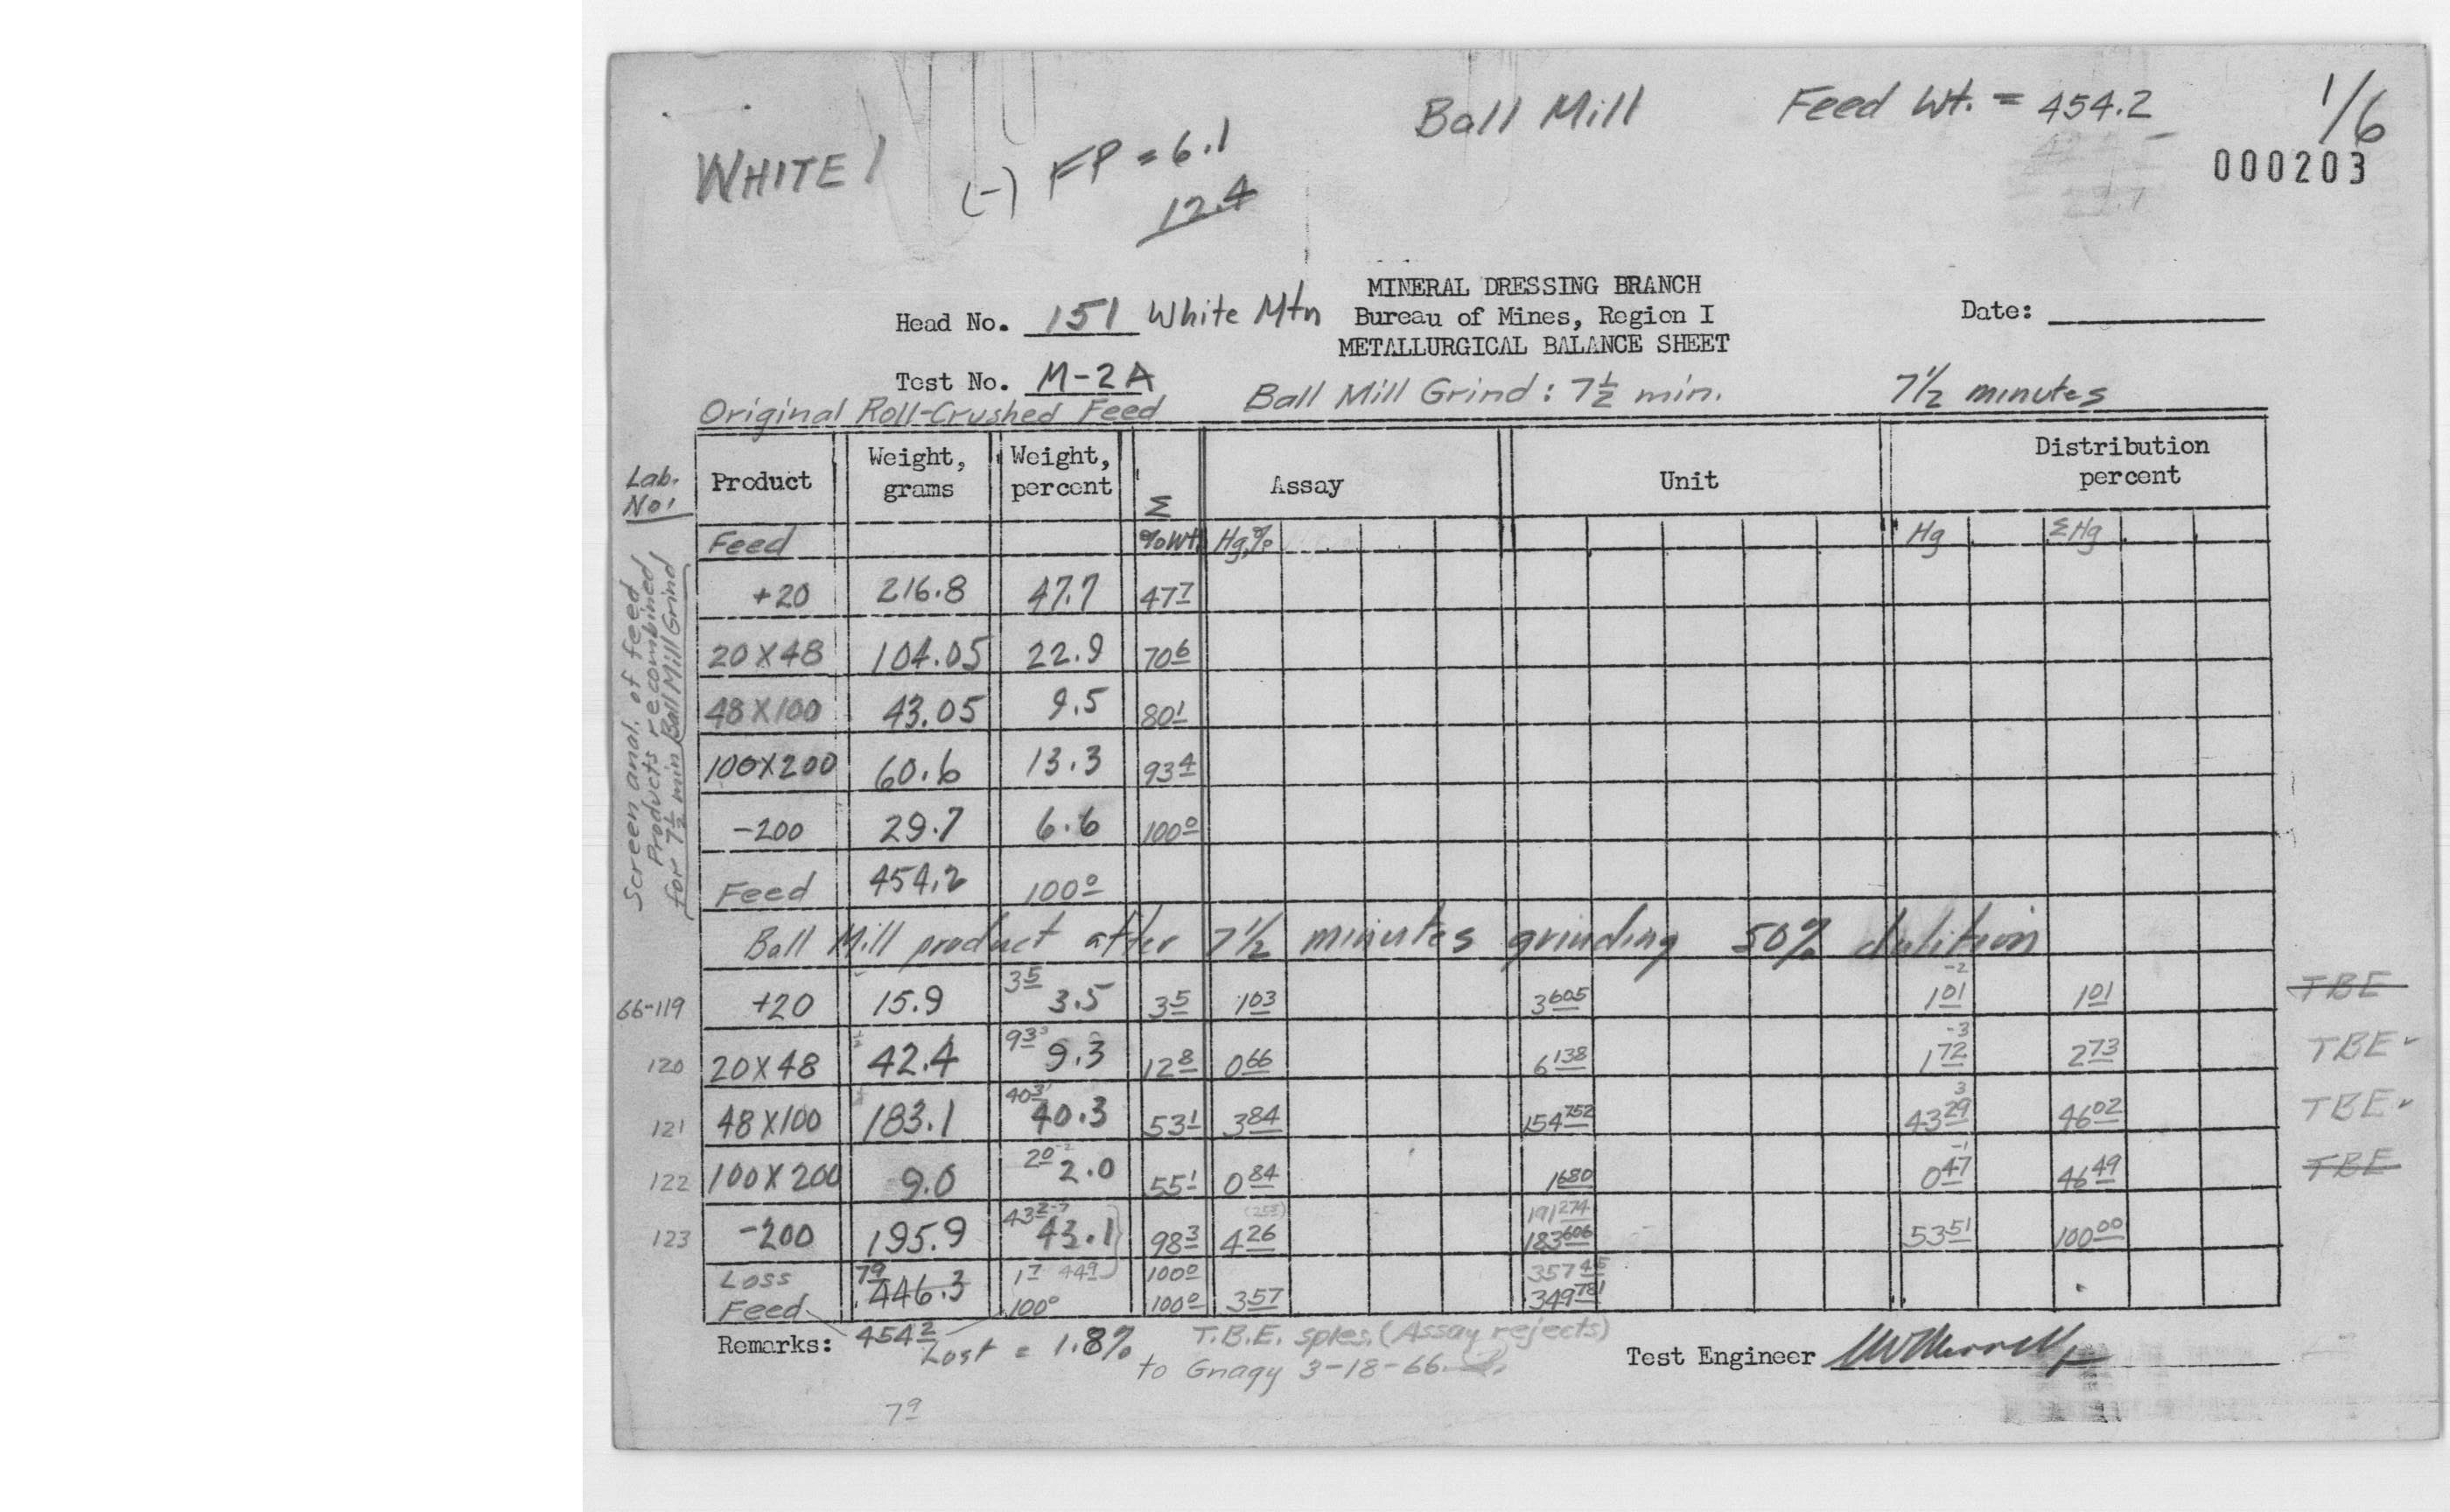 Ball Mill Feed Wt. = 454.2 1/6
WHITE 1 (-) FP = 6.1 000203
12.4
MINERAL DRESSING BRANCH
Head No. 151 White Mtn Bureau of Mines, Region I Date:
METALLURGICAL BALANCE SHEET
Test No. M-2A Ball Mill Grind: 7½ min. 7½ minutes
Original Roll-Crushed Feed
Lab. No. Product Weight, grams Weight, percent Σ % Wt. Assay Unit Distribution percent
Feed Hg,% Hg ΣHg
Screen anal. of feed
Products recombined
for 7½ min Ball Mill Grind
+20 216.8 47.7 47.7
20 X 48 104.05 22.9 70.6
48 X 100 43.05 9.5 80.1
100 X 200 60.6 13.3 93.4
-200 29.7 6.6 100.0
Feed 454.2 100.0
Ball Mill product after 7½ minutes grinding 50% dulition
66-119 +20 15.9 3.5 3.5 3.5 1.03 3.605 -2 1.01 1.01 TBE
120 20 X 48 42.4 9.3 9.3 12.8 0.66 6.138 -3 1.72 2.73 TBE
121 48 X 100 183.1 40.3 40.3 53.1 3.84 154.752 3 43.29 46.02 TBE
122 100 X 200 9.0 2.0 2.0 55.1 0.84 1.680 -1 0.47 46.49 TBE
123 -200 195.9 43.2 43.1 98.3 4.26 191.274 183.606 53.51 100.00
Loss 7.9 1.7 44.9 100.0 357.415
Feed 446.3 100.0 100.0 3.57 349.781
Remarks: 454.2 Lost = 1.8% T.B.E. sples. (Assay rejects)
to Gnagy 3-18-66
Test Engineer
7.9